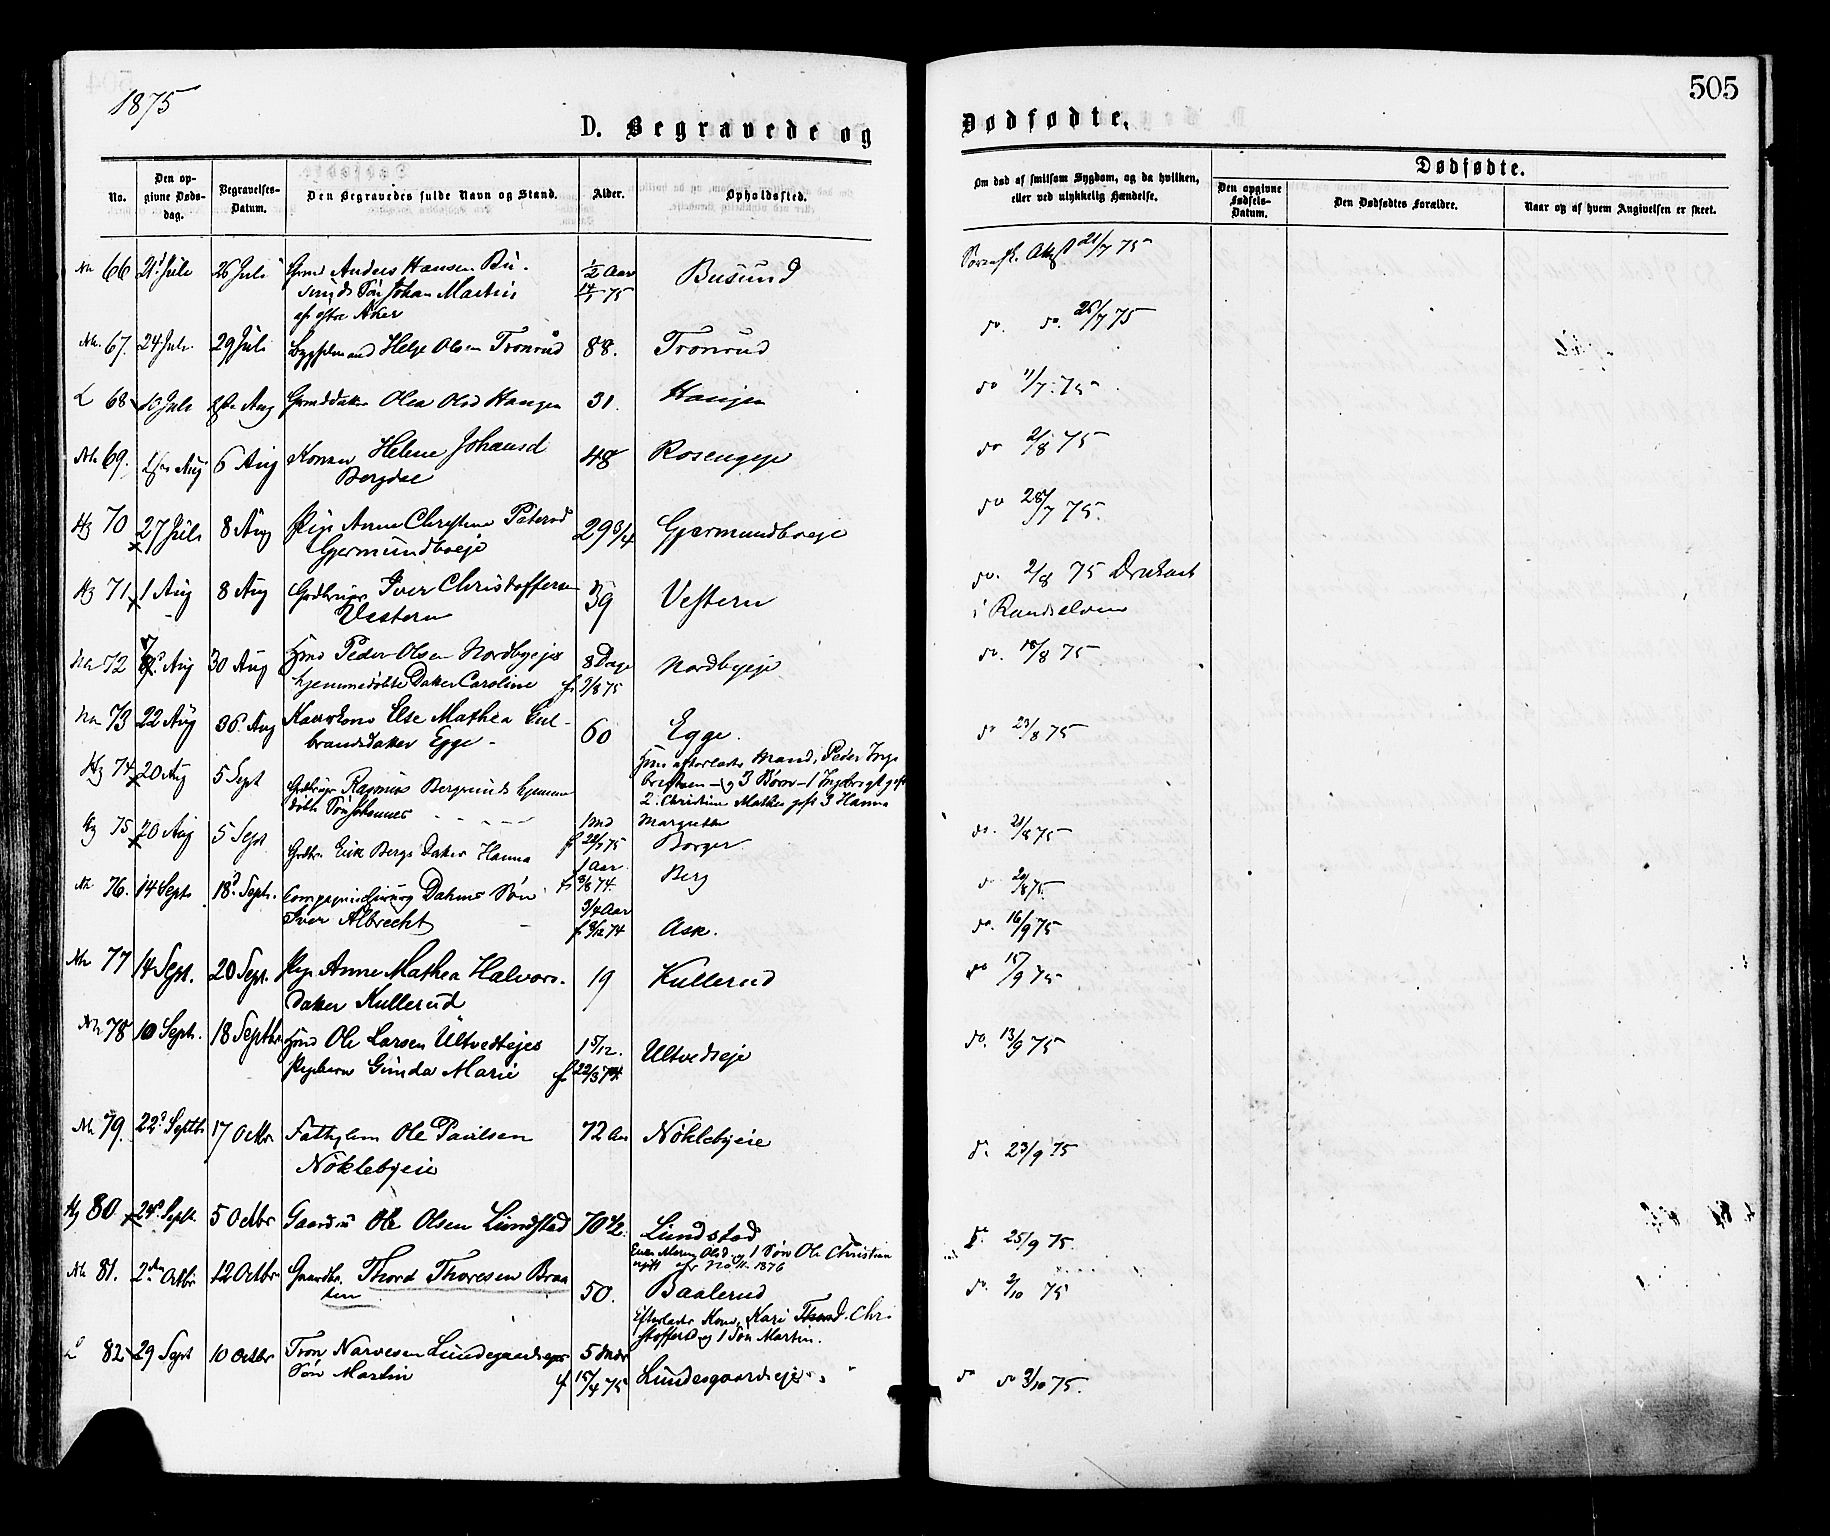 1875
505
D. Begravede og
Dødfødte.
No.
Den op-
givne Døds-
dag.
Begravelses-
Datum.
Den Begravedes fulde Navn og Stand.
Alder.
Opholdssted.
Om død af smitsom Sygdom, og da hvilken,
eller ved ulykkelig Hændelse.
Dødfødte.
Den opgivne
Fødsels-
Datum.
Den Dødfødtes Forældre.
Naar og af hvem Angivelsen er skeet.
66 21 Juli 26 Juli Anders Hansen Bu-
Søn Johan Martin
Aker
1/2 Aar
75
Busund
21/7 75
67. 24 Juli 29 Juli Helge Olsen Tronrud 88. Tronrud
do. do. 7 75
68 Juli Aug Olea Olsd Haugen 31. Haugen
do 11/7 75
Nh 69. Aug 6 Aug Konen Helene Johansd
Bergdal
48 Rosengeje
do 2/8 75
Hg 70 27 Juli 8 Aug Pige Anne Christine Petersd
Gjermundboeje
29 3/4 Gjermundboeje
do 28/7 75.
Hg 71 1 Aug 8 Aug Iver Christoffersen
Vestern
39 Vestern
do. 2/8 75 Druknet
i Randselven
72 Aug 30 Aug Hmd Peder Olsen Nordbyejes
hjemmedøbte Datter Caroline
8 Dage
f. 9/8 75
Nordbyeje
do. 18/8 75
73 22 Aug 30. Aug Kaarkone Else Mathea Gul-
brandsdatter Egge
60 Egge.
Hun efterlader Mand, Peder Inge
brigtsen og 3 Børn 1 Ingebrigt gift
2. Christine Mathea gift 3 Hanna
Margrethe
do 23/8 75
Hg 74 20 Aug 5 Sept Rasmus Bergerunds hjemme
døbte Søn Johannes
1 Md
75
Borger
do. 21/8 75
Hg 75 20 Aug 5 Sept Erik Bergs Datter Hanna
1 Aar
f. 8 74.
Berg
do 8 75.
Nh 76. 14 Sept 18 Sept. Dahms Søn
Iver Albrecht
3/4 Aar
12 74
Ask.
do. 16/9 75
Nh 77 14 Sept. 20 Sept. Pige Anne Mathea Halvors-
datter Kullerud
19 Kullerud
do 15/9 75
Nh 78 10 Sept. 18 Septbr Hmd Ole Larsen Ultvedtejes
Pigebarn Gunda Marie
1 5/12.
f. 22/3 74
Ultvedseje
do. 13/9 75
Nh 79. 22 Septb. 17 Octbr Fattiglem Ole Paulsen
Nøklebyeie
72 Aar Nøklebyeie
do. 23/9 75
Hg 80 24 Septb. 5 Octbr Ole Olsen Lundstad 70 1/2 Lundstad
Enke Olsd. og 1 Søn Ole Christian
ugift No 11. 1876
do. 25/9 75.
Nh 81. 2den Octbr 12 Octbr Gaardbr. Thord Thoresen Braa
ten
50. Baalerud
Efterlader Kone, Kari Chri-
stoffersd og 1 Søn Martin.
do. 2/10 75
82 29 Sept 10 Octbr Tron Narvesen Lundegaardsejes
Søn Martin
5 Mdr
f 15/4 75
Lundesgaardseje
do do 9/10 75.